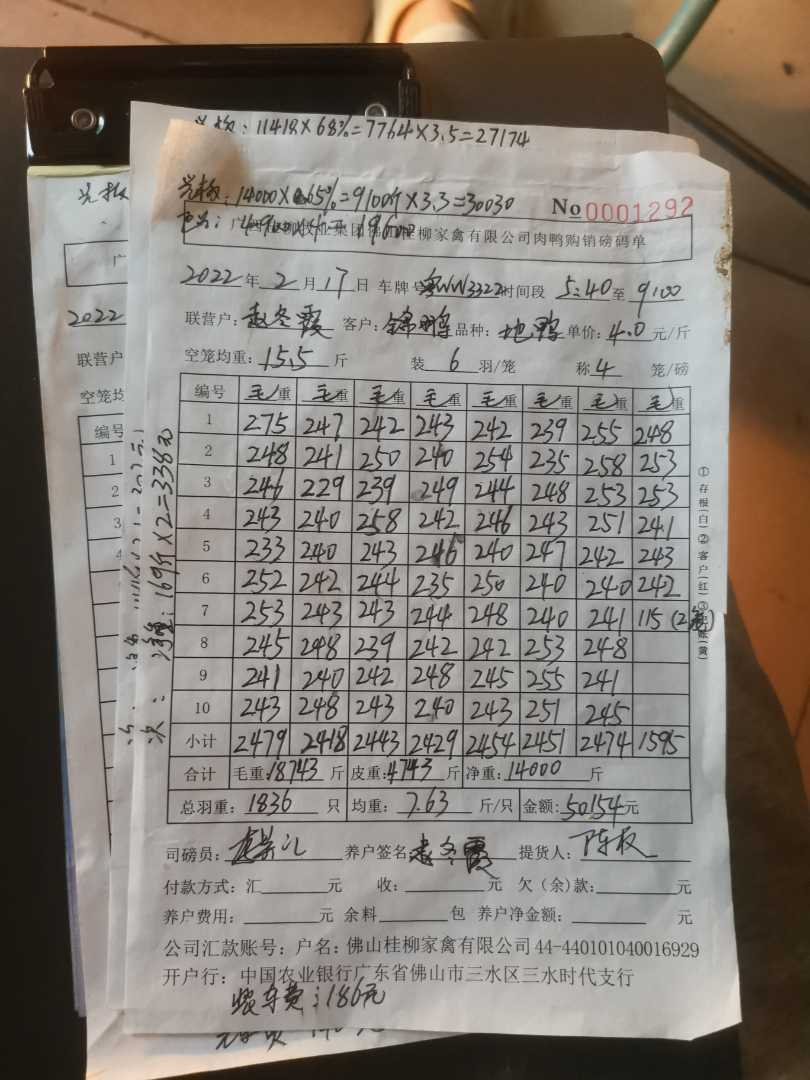 11418×68%=7764×3.5=27174
14000×65%=9100斤×3.3=30030
No 0001292
桂柳家禽有限公司肉鸭购销磅码单
2022年2月17日 车牌号 3322时间段 5:40至9:00
联营户:赵冬霞 客户:锦鹏 品种:地鸭 单价:4.0元/斤
空笼均重:15.5斤 装6羽/笼 称4笼/磅
编号 毛重 毛重 毛重 毛重 毛重 毛重 毛重 毛重
1 275 247 242 243 242 239 255 248
2 248 241 250 240 254 235 258 253
3 246 229 239 249 244 248 253 253
4 243 240 258 242 246 243 251 241
5 233 240 243 246 240 247 242 243
6 252 242 244 235 250 240 240 242
7 253 243 243 244 248 240 241 115
8 245 248 239 242 242 253 248
9 241 240 242 248 245 255 241
10 243 248 243 240 243 251 245
小计 2479 2418 2443 2429 2454 2451 2474 1595
合计 毛重:18743斤 皮重:4743斤 净重:14000斤
总羽重:1836只 均重:7.63斤/只 金额:50154元
司磅员: 养户签名:赵冬霞 提货人:陈权
付款方式:汇 元 收: 元 欠(余)款: 元
养户费用: 元 余料 包 养户净金额: 元
公司汇款账号:户名:佛山桂柳家禽有限公司44-440101040016929
开户行:中国农业银行广东省佛山市三水区三水时代支行
186元
①存根(白)②客户(红)③
169斤×2=338元
2022
联营户
空笼均
编号
1
2
3